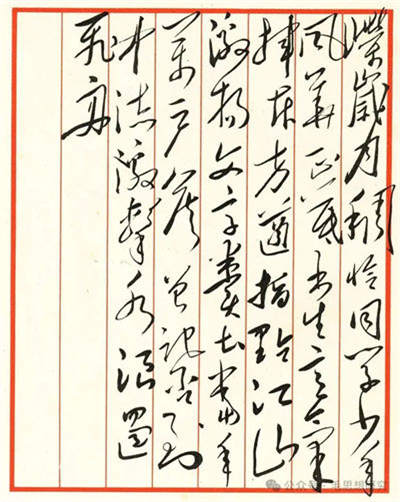 嶸歲月稠恰同学少年
风華正茂书生意气
挥斥方遒指點江山
激扬文字粪土当年
萬户侯曾记否到
中流擊水浪遏
飞舟
公众号